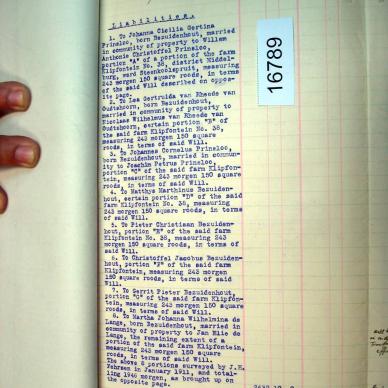 Liabilities.
1. To Johanna Cicilia Gertina
Prinsloo, born Bezuidenhout, married
in community of property to Willem
Anthonie Christoffel Prinsloo,
portion "A" of a portion of the farm
Klipfontein No. 38, district Middel-
burg, ward Steenkoolspruit, measuring
243 morgen 150 square roods, in terms
of the said Will described on oppos-
ite page.
2. To Lea Gertruida van Rheede van
Oudtshoorn, born Bezuidenhout,
married in community of property to
Nicolaas Wilhelmus van Rheede van
Oudtshoorn, certain portion "B" of
the said farm Klipfontein No. 38,
measuring 243 morgen 150 square
roods, in terms of said Will.
3. To Johannes Cornelus Prinsloo,
born Bezuidenhout, married in commun-
ity to Joachim Petrus Prinsloo,
portion "C" of the said farm Klipfon-
tein, measuring 243 morgen 150 square
roods, in terms of said Will.
4. To Matthys Marthinus Bezuiden-
hout, certain portion "D" of the said
farm Klipfontein No. 38, measuring
243 morgen 150 square roods, in terms
of said Will.
5. To Pieter Christiaan Bezuiden-
hout, portion "E" of the said farm
Klipfontein No. 38, measuring 243
morgen 150 square roods, in terms of
said Will.
6. To Christoffel Jacobus Bezuiden-
hout, portion "F" of the said farm
Klipfontein, measuring 243 morgen
150 square roods, in terms of said
Will.
7. To Gerrit Pieter Bezuidenhout,
portion "G" of the said farm Klipfon-
tein, measuring 243 morgen 150 square
roods, in terms of said Will.
8. To Martha Johanna Wilhelmina de
Lange, born Bezuidenhout, married in
community of property to Jan Hile de
Lange, the remaining extent of a
portion of the said farm Klipfontein,
measuring 243 morgen 150 square
roods, in terms of said Will.
The above 8 portions surveyed by J.H.
Vohrsen in January 1911, and total-
ling 1946 morgen, as brought up on
the opposite page.
16789